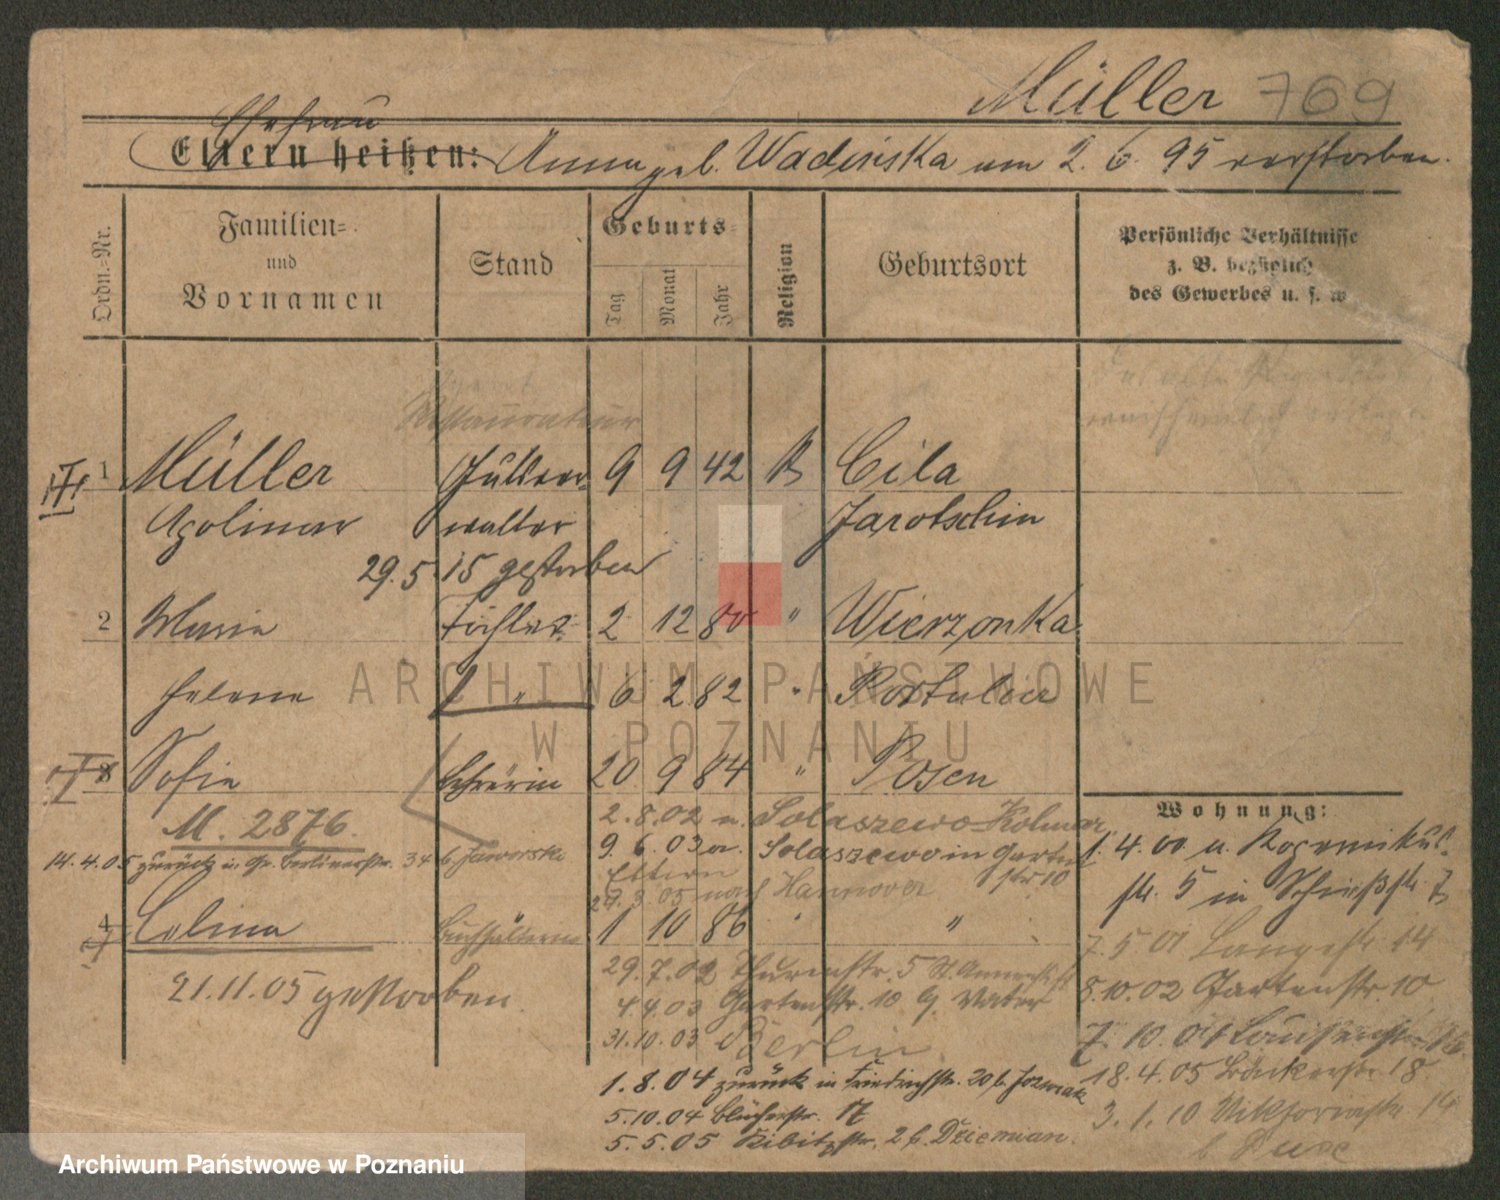 Müller 769
Ehefrau
Eltern heißen: Anna geb. Wadinska am 2. 6. 95 verstorben.
Ordn.-Nr.
Familien- und Vornamen
Stand
Geburts-
Tag Monat Jahr
Religion
Geburtsort
Persönliche Verhältnisse
z. B. bezüglich
des Gewerbes u. s. w.
Restaurateur
1 Müller 9 9 42 K Cila
Apolinar walter Jarotschin
29. 5. 15 gestorben
2 Marie Tochter 2 12 80 " Wierzonka
Helene " 6 2 82 "
3 Sofie 20 9 84 " Posen
Wohnung:
M. 2876.
2. 8. 02 n. Solaszewo Kolmar
14. 4. 05 zurück u. Gr. Berlinerstr. 34 b. Jaworski
9. 6. 03 v. Solaszewo in Garten
str 10
Eltern
27. 3. 05 nach Hannover
1. 4. 00 u.
str. 5 in Schießstr. 7
4 Celina Buchhälterin 1 10 86 " "
7. 5. 01 Langestr. 14
21. 11. 05 gestorben.
29. 7. 02 Thurmstr. 5
8. 10. 02 Gartenstr. 10
4. 4. 03 Gartenstr. 10 b. Vater
31. 10. 03 Berlin
7. 10. 04 Louisenstr.
1. 8. 04 zurück in Friedrichstr. 20 b.
18. 4. 05 Bäckerstr. 18
5. 10. 04 Blücherstr. 17
3. 1. 10 Viktoriastr. 14
5. 5. 05 Kibitzstr. 2 b. Dzieman.
ARCHIWUM PAŃSTWOWE
W POZNANIU
Archiwum Państwowe w Poznaniu